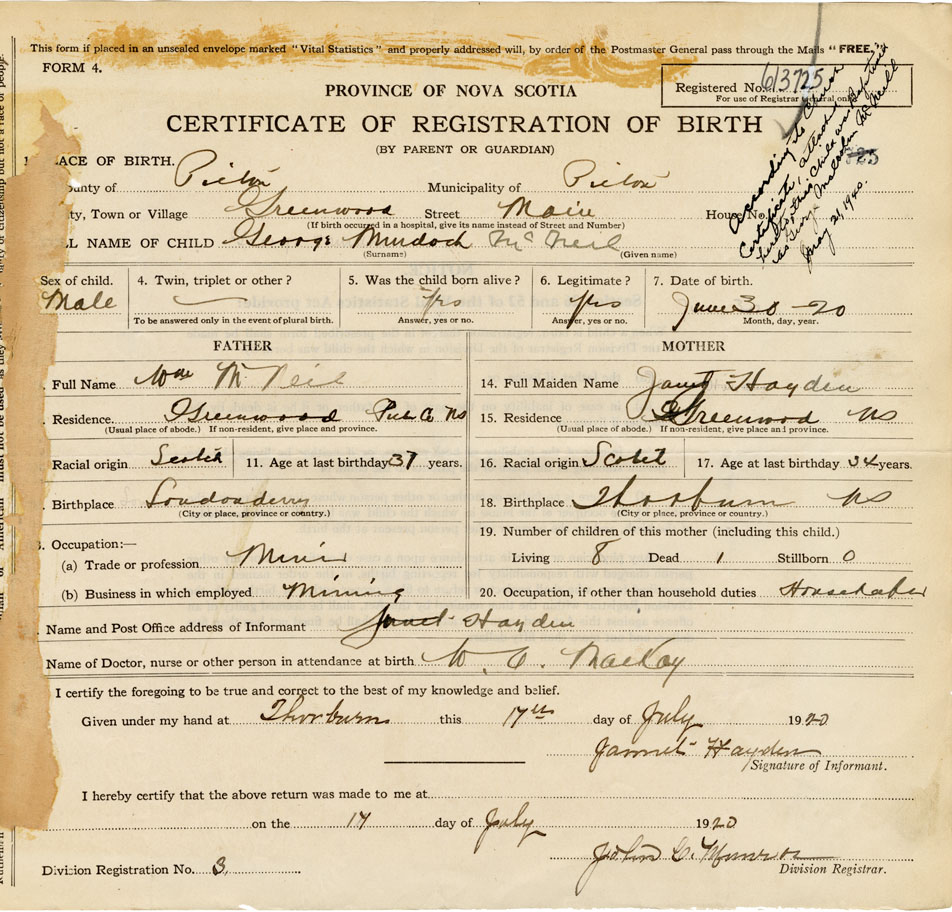 This form if placed in an unsealed envelope marked "Vital Statistics" and properly addressed will, by order of the Postmaster General pass through the Mails "FREE."
FORM 4.
Registered No. 613725
For use of Registrar General only
PROVINCE OF NOVA SCOTIA
CERTIFICATE OF REGISTRATION OF BIRTH
(BY PARENT OR GUARDIAN)
According to Church
Certificate, attached
hereto, this child was Baptised
as George Malcolm McNeill
May 21, 1940.
725
ACE OF BIRTH.
ounty of Pictou Municipality of Pictou
ty, Town or Village Greenwood Street Main House No.
(If birth occurred in a hospital, give its name instead of Street and Number)
LL NAME OF CHILD George Murdoch McNeil
(Surname) (Given name)
Sex of child. Male
4. Twin, triplet or other?
To be answered only in the event of plural birth.
5. Was the child born alive? Yrs
Answer, yes or no.
6. Legitimate? Yrs
Answer, yes or no.
7. Date of birth.
June 30 - 20
Month, day, year.
FATHER
Full Name Wm McNeil
Residence. Greenwood Pict Co NS
(Usual place of abode.) If non-resident, give place and province.
Racial origin Scotch 11. Age at last birthday 37 years.
Birthplace Londonderry
(City or place, province or country.)
Occupation:—
(a) Trade or profession Miner
(b) Business in which employed Mining
MOTHER
14. Full Maiden Name Janet Hayden
15. Residence Greenwood NS
(Usual place of abode.) If non-resident, give place and province.
16. Racial origin Scotch 17. Age at last birthday 34 years.
18. Birthplace Thorburn NS
(City or place, province or country.)
19. Number of children of this mother (including this child.)
Living 8 Dead 1 Stillborn 0
20. Occupation, if other than household duties
Name and Post Office address of Informant Janet Hayden
Name of Doctor, nurse or other person in attendance at birth W. C. MacKay
I certify the foregoing to be true and correct to the best of my knowledge and belief.
Given under my hand at Thorburn this 17th day of July 1920
Jannet Hayden
Signature of Informant.
I hereby certify that the above return was made to me at
on the 17 day of July 1920
John C. Munro
Division Registrar.
Division Registration No. 3.